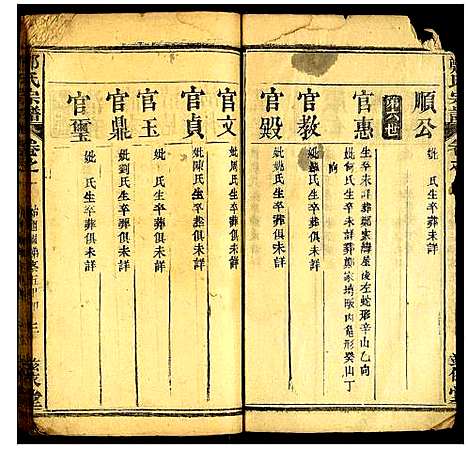 順公
妣 氏生卒葬俱未詳
第六世
官惠
生卒未詳葬鄭家灣屋後左蛇形辛山乙向
妣何氏生卒未詳葬鄭家垮畈內龜形癸山丁
向
官教
妣姚氏生卒葬俱未詳
官殿
官文
妣周氏生卒葬俱未詳
官貞
妣陳氏生卒葬俱未詳
官玉
妣 氏生卒葬俱未詳
官鼎
妣劉氏生卒葬俱未詳
官璽
妣 氏生卒葬俱未詳
氏宗譜